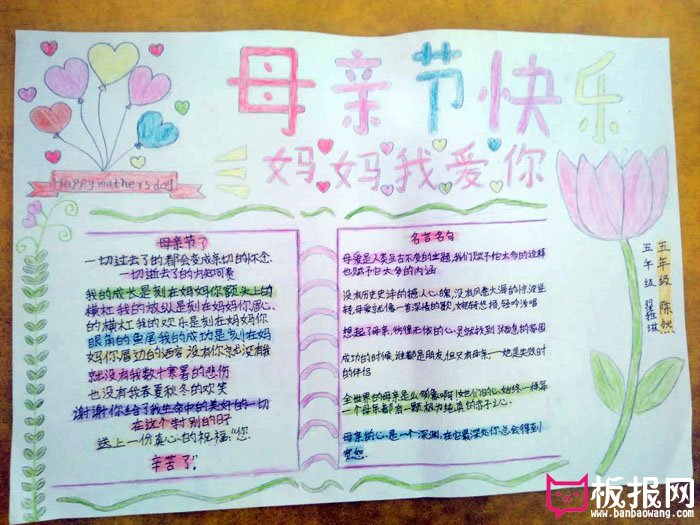 母亲节快乐
妈妈我爱你
Happy mather's dog
母亲节了
一切过去了的都会变成亲切的怀念
一切逝去了的方知可贵
我的成长是刻在妈妈你额头上的
横杠我的放纵是刻在妈妈你眉心
的横杠我的欢乐是刻在妈妈你
眼角的鱼尾我的成功是刻在妈
妈你唇边的酒窝没有你就没有我
就没有我数十寒暑的悲伤
也没有我春夏秋冬的欢笑
谢谢你给了我生命中的美好的一切
在这个特别的日子
送上一份真心的祝福："您
辛苦了"。
名言名句
母爱是人类亘古不变的主题，我们赋予它太多的诠释
也赋予它太多的内涵
没有历史史诗的撼人心魄，没有风卷大海的惊波逆
转，母爱就像一首深情的歌，婉转悠扬，轻吟浅唱
想起了母亲，彷徨无依的心灵就找到了栖息的家园
成功的时候，谁都是朋友，但只有母亲——她是失败时
的伴侣
全世界的母亲是多么的像啊！她们的心始终一样每
一个母亲都有一颗极为纯真的赤子之心。
母亲的心是一个深渊，在它最深处你总会得到
宽恕
五年级 陈然
五年级
板报网
www.banbaowang.com